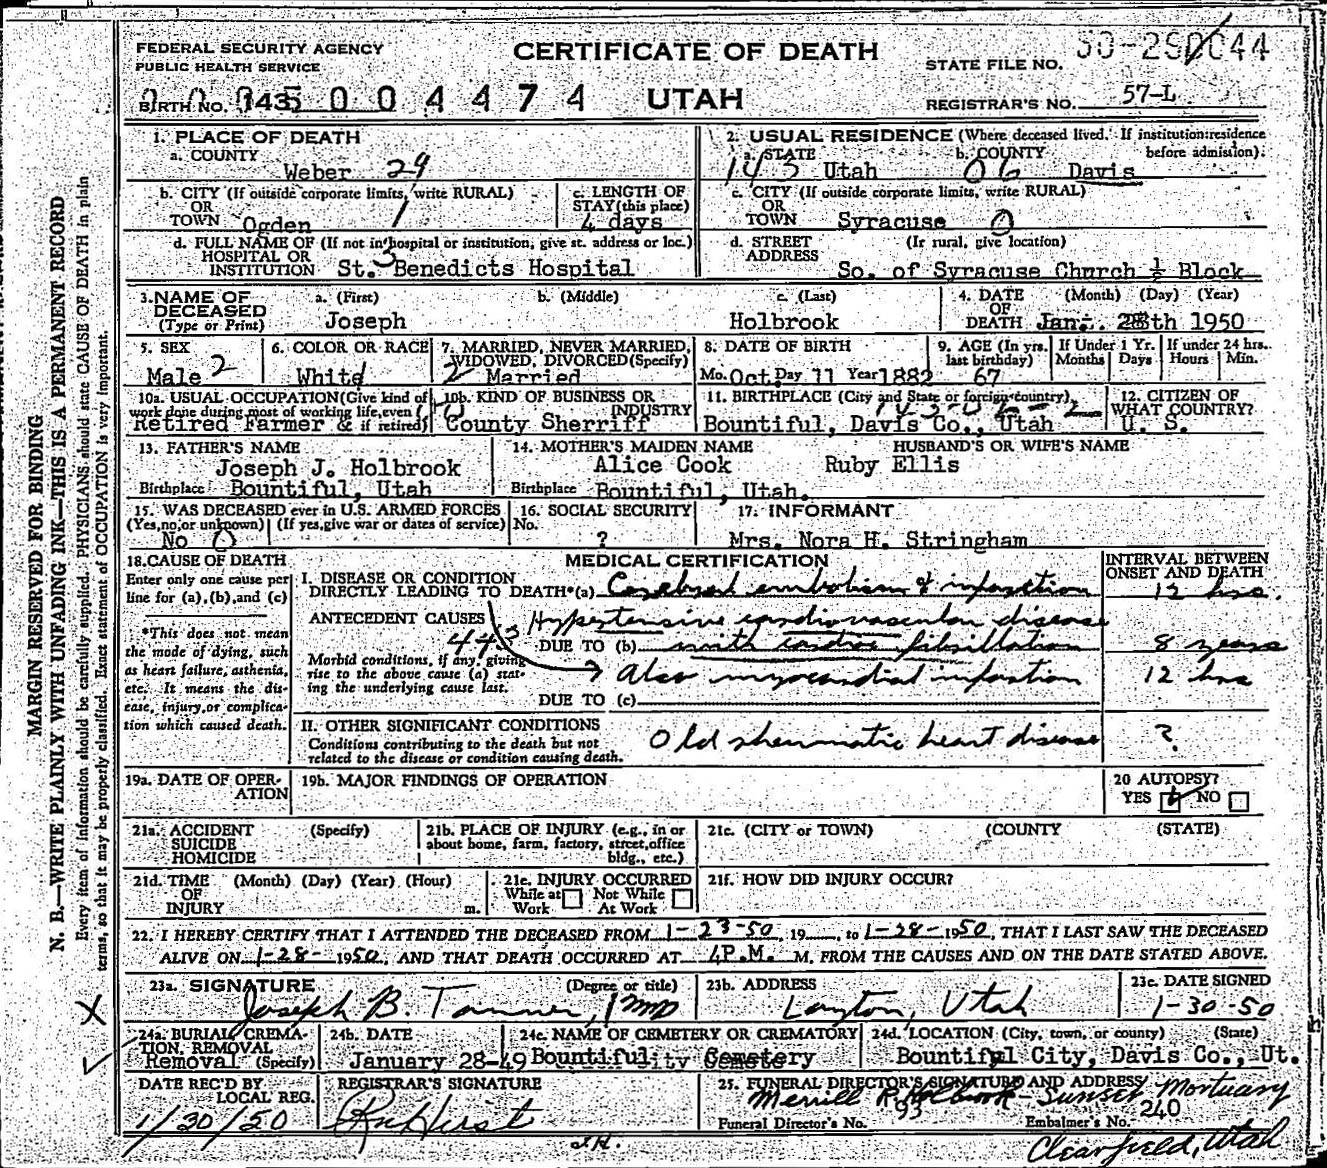 FEDERAL SECURITY AGENCY
PUBLIC HEALTH SERVICE
CERTIFICATE OF DEATH
STATE FILE NO.
BIRTH NO. 143 5 0 0 4 4 7 4
UTAH
REGISTRAR'S NO. 57-L
1. PLACE OF DEATH
a. COUNTY
Weber 29
2. USUAL RESIDENCE (Where deceased lived. If institution: residence before admission).
a. STATE b. COUNTY
143 Utah 06 Davis
b. CITY (If outside corporate limits, write RURAL)
OR
TOWN Ogden 1
c. LENGTH OF
STAY (this place)
4 days
c. CITY (If outside corporate limits, write RURAL)
OR
TOWN Syracuse 0
d. FULL NAME OF (If not in hospital or institution, give st. address or loc.)
HOSPITAL OR
INSTITUTION St. Benedicts Hospital
3
d. STREET (If rural, give location)
ADDRESS
So. of Syracuse Church ½ Block
3. NAME OF a. (First) b. (Middle) c. (Last)
DECEASED
(Type or Print) Joseph Holbrook
4. DATE (Month) (Day) (Year)
OF
DEATH Jan. 28th 1950
5. SEX
Male 2
6. COLOR OR RACE
White
7. MARRIED, NEVER MARRIED,
WIDOWED, DIVORCED (Specify)
2 Married
8. DATE OF BIRTH
Mo. Oct. Day 11 Year 1882
9. AGE (In yrs. last birthday)
67
If Under 1 Yr.
Months Days
If under 24 hrs.
Hours Min.
10a. USUAL OCCUPATION (Give kind of
work done during most of working life, even if retired)
Retired Farmer &
10b. KIND OF BUSINESS OR
INDUSTRY
County Sherriff
11. BIRTHPLACE (City and State or foreign country)
Bountiful, Davis Co., Utah
12. CITIZEN OF
WHAT COUNTRY?
U. S.
13. FATHER'S NAME
Joseph J. Holbrook
Birthplace Bountiful, Utah
14. MOTHER'S MAIDEN NAME
Alice Cook
Birthplace Bountiful, Utah.
HUSBAND'S OR WIFE'S NAME
Ruby Ellis
15. WAS DECEASED ever in U.S. ARMED FORCES
(Yes, no, or unknown) (If yes, give war or dates of service)
No 0
16. SOCIAL SECURITY
No.
?
17. INFORMANT
Mrs. Nora H. Stringham
18. CAUSE OF DEATH
Enter only one cause per
line for (a), (b), and (c)
*This does not mean
the mode of dying, such
as heart failure, asthenia,
etc. It means the dis-
ease, injury, or complica-
tion which caused death.
MEDICAL CERTIFICATION
INTERVAL BETWEEN
ONSET AND DEATH
I. DISEASE OR CONDITION
DIRECTLY LEADING TO DEATH* (a) Cerebral embolism & infarction 12 hrs.
ANTECEDENT CAUSES Hypertensive cardiovascular disease
443
DUE TO (b) with cardiac fibrillation 8 years
Morbid conditions, if any, giving
rise to the above cause (a) stat-
ing the underlying cause last.
Also myocardial infarction 12 hrs
DUE TO (c)
II. OTHER SIGNIFICANT CONDITIONS
Conditions contributing to the death but not
related to the disease or condition causing death.
Old rheumatic heart disease ?
19a. DATE OF OPER-
ATION
19b. MAJOR FINDINGS OF OPERATION
20 AUTOPSY?
YES NO
21a. ACCIDENT (Specify)
SUICIDE
HOMICIDE
21b. PLACE OF INJURY (e.g., in or
about home, farm, factory, street, office
bldg., etc.)
21c. (CITY or TOWN) (COUNTY (STATE)
21d. TIME (Month) (Day) (Year) (Hour)
OF
INJURY m.
21e. INJURY OCCURRED
While at Not While
Work At Work
21f. HOW DID INJURY OCCUR?
22. I HEREBY CERTIFY THAT I ATTENDED THE DECEASED FROM 1-23-50, 19 , to 1-28-1950, THAT I LAST SAW THE DECEASED
ALIVE ON 1-28-1950, AND THAT DEATH OCCURRED AT 4 P.M. M, FROM THE CAUSES AND ON THE DATE STATED ABOVE.
23a. SIGNATURE (Degree or title)
Joseph B. Tanner, MD
23b. ADDRESS
Layton, Utah
23c. DATE SIGNED
1-30-50
24a. BURIAL, CREMA-
TION, REMOVAL
Removal (Specify)
24b. DATE
January 28-49
24c. NAME OF CEMETERY OR CREMATORY
Bountiful ity Cemetery
24d. LOCATION (City, town, or county) (State)
Bountiful City, Davis Co., Ut.
DATE REC'D BY
LOCAL REG.
1/30/50
REGISTRAR'S SIGNATURE
25. FUNERAL DIRECTOR'S SIGNATURE AND ADDRESS
Merrill R. Holbrook - Sunset Mortuary
Funeral Director's No. 93
Embalmer's No. 240
Clearfield, Utah
MARGIN RESERVED FOR BINDING
N. B.—WRITE PLAINLY WITH UNFADING INK—THIS IS A PERMANENT RECORD
Every item of information should be carefully supplied. PHYSICIANS should state CAUSE OF DEATH in plain
terms, so that it may be properly classified. Exact statement of OCCUPATION is very important.